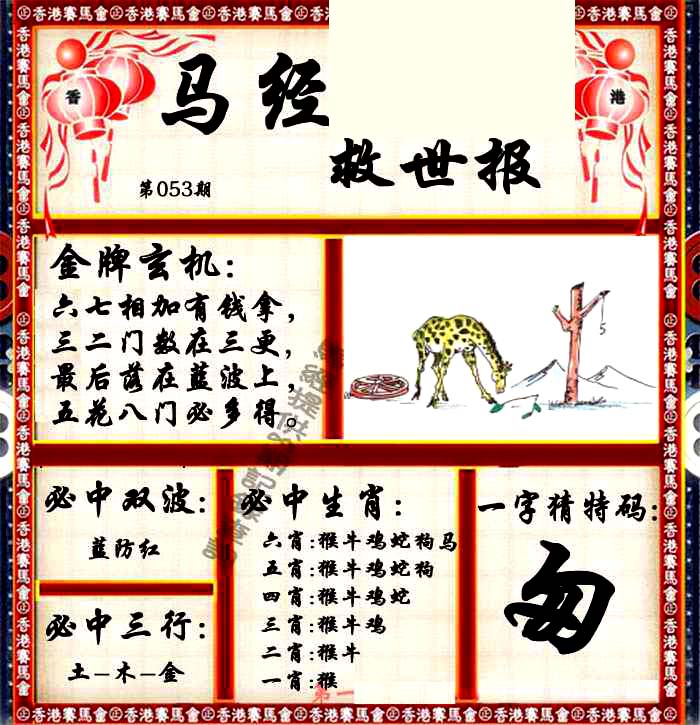 香港賽馬會
香
港
马经
救世报
第053期
金牌玄机：
六七相加有钱拿，
三二门数在三更，
最后落在蓝波上，
五花八门必多得。
必中双波：
蓝防红
必中三行：
土–木–金
必中生肖：
六肖:猴牛鸡蛇狗马
五肖:猴牛鸡蛇狗
四肖:猴牛鸡蛇
三肖:猴牛鸡
二肖:猴牛
一肖:猴
第一
一字猜特码：
匆